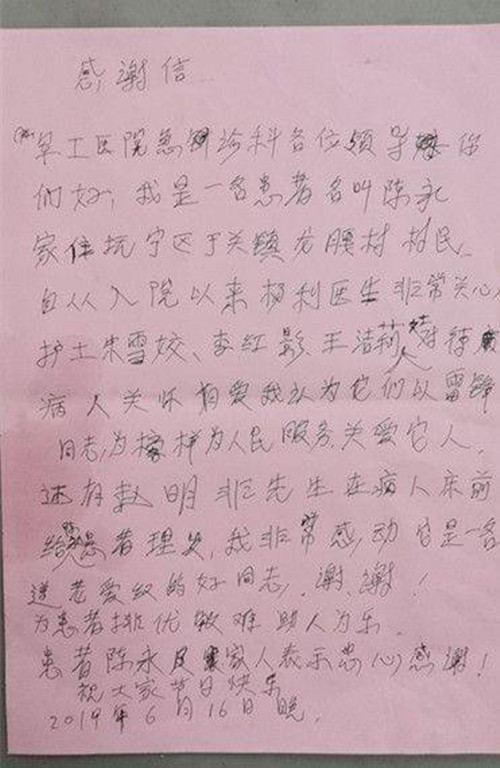 感谢信
军工医院急诊科各位领导你
们好，我是一名患者名叫陈永
家住抚宁区于关镇龙腰村村民
自从入院以来杨利医生非常关心
护士朱雪姣、李红影王洁莉对待
病人关怀有爱我认为它们以雷锋
同志为榜样为人民服务关爱它人，
还有赵明非先生在病人床前
给患者理发，我非常感动也是一名
尊老爱幼的好同志，谢谢！
为患者排忧救难助人为乐。
患者陈永及家人表示忠心感谢！
祝大家节日快乐
2019年6月16日晚，